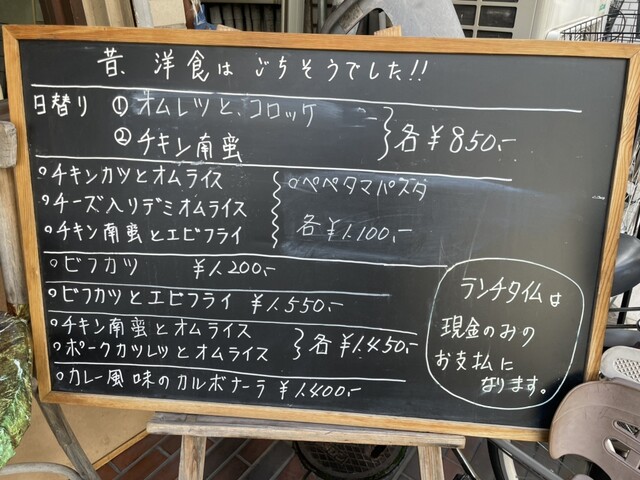 昔、洋食は ごちそうでした!!
日替り ① オムレツと、コロッケ
② チキン南蛮
各¥850,-
○チキンカツとオムライス
○チーズ入りデミオムライス
○チキン南蛮とエビフライ
○ペペタマパスタ
各¥1,100,-
○ビフカツ ¥1,200,-
○ビフカツとエビフライ ¥1,550,-
○チキン南蛮とオムライス
○ポークカツレツとオムライス
各¥1,450,-
○カレー風味のカルボナーラ ¥1,400,-
ランチタイムは
現金のみの
お支払に
なります。